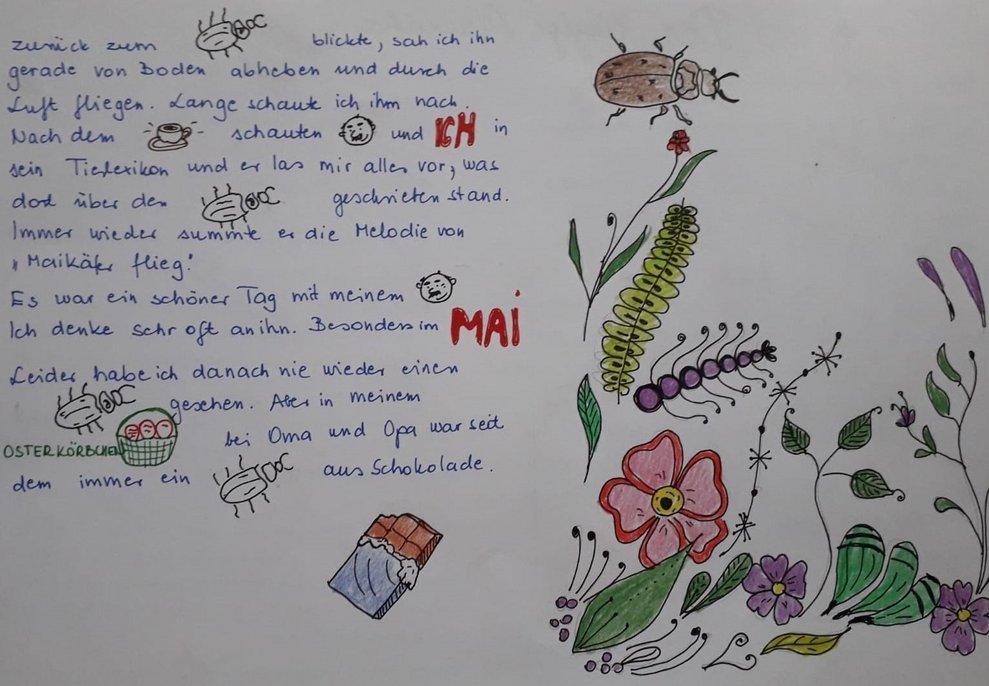 zurück zum blickte, sah ich ihn
gerade von Boden abheben und durch die
Luft fliegen. Lange schaute ich ihm nach.
Nach dem schauten und ICH in
sein Tierlexikon und er las mir alles vor, was
dort über den geschrieben stand.
Immer wieder summte er die Melodie von
"Maikäfer flieg."
Es war ein schöner Tag mit meinem
Ich denke sehr oft an ihn. Besonders im MAI
Leider habe ich danach nie wieder einen
gesehen. Aber in meinem
OSTERKÖRBCHEN bei Oma und Opa war seit
dem immer ein aus Schokolade.